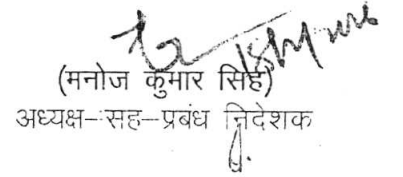 (मनोज कुमार सिंह)
अध्यक्ष-सह-प्रबंध निदेशक